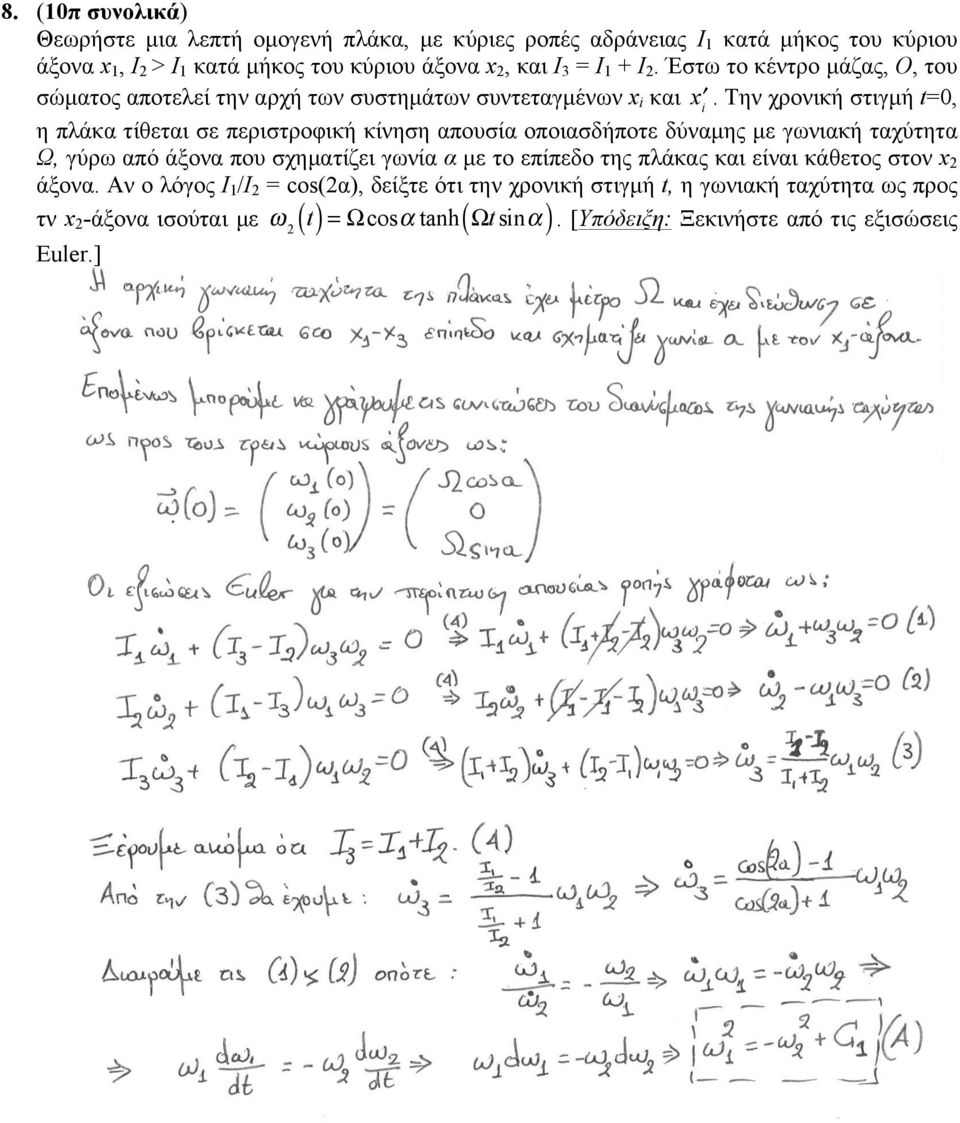 8. (10π συνολικά)
Θεωρήστε μια λεπτή ομογενή πλάκα, με κύριες ροπές αδράνειας I₁ κατά μήκος του κύριου
άξονα x₁, I₂ > I₁ κατά μήκος του κύριου άξονα x₂, και I₃ = I₁ + I₂. Έστω το κέντρο μάζας, Ο, του
σώματος αποτελεί την αρχή των συστημάτων συντεταγμένων xᵢ και x′ᵢ. Την χρονική στιγμή t=0,
η πλάκα τίθεται σε περιστροφική κίνηση απουσία οποιασδήποτε δύναμης με γωνιακή ταχύτητα
Ω, γύρω από άξονα που σχηματίζει γωνία α με το επίπεδο της πλάκας και είναι κάθετος στον x₂
άξονα. Αν ο λόγος I₁/I₂ = cos(2α), δείξτε ότι την χρονική στιγμή t, η γωνιακή ταχύτητα ως προς
τν x₂-άξονα ισούται με ω₂(t) = Ωcosα tanh(Ωt sinα). [Υπόδειξη: Ξεκινήστε από τις εξισώσεις
Euler.]
Η αρχική γωνιακή ταχύτητα της πλάκας έχει μέτρο Ω και έχει διεύθυνση σε
άξονα που βρίσκεται στο x₁-x₃ επίπεδο και σχηματίζει γωνία α με τον x₁-άξονα.
Επομένως μπορούμε να γράψουμε τις συνιστώσες του διανύσματος της γωνιακής ταχύτητας
ως προς τους τρεις κύριους άξονες ως:
ω⃗(0) = (ω₁(0) ω₂(0) ω₃(0)) = (Ωcosα 0 Ωsinα)
Οι εξισώσεις Euler για την περίπτωση απουσίας ροπής γράφονται ως:
I₁ω̇₁ + (I₃-I₂)ω₃ω₂ = 0 ⇒(4) I₁ω̇₁ + (I₁+I₂-I₂)ω₃ω₂=0 ⇒ ω̇₁+ω₃ω₂=0 (1)
I₂ω̇₂ + (I₁-I₃)ω₁ω₃=0 ⇒(4) I₂ω̇₂ + (I₁-I₁-I₂)ω₁ω₃=0 ⇒ ω̇₂ - ω₁ω₃=0 (2)
I₃ω̇₃ + (I₂-I₁)ω₁ω₂=0 ⇒(4) (I₁+I₂)ω̇₃ + (I₂-I₁)ω₁ω₂=0 ⇒ ω̇₃ = (I₁-I₂)/(I₁+I₂) ω₁ω₂ (3)
Ξέρουμε ακόμα ότι I₃=I₁+I₂. (4)
Από την (3) θα έχουμε: ω̇₃ = (I₁/I₂ - 1)/(I₁/I₂ + 1) ω₁ω₂ ⇒ ω̇₃ = (cos(2α)-1)/(cos(2α)+1) ω₁ω₂
Διαιρούμε τις (1) ς (2) οπότε: ω̇₁/ω̇₂ = - ω₂/ω₁ ⇒ ω̇₁ω₁ = -ω̇₂ω₂ ⇒
⇒ ω₁ dω₁/dt = - ω₂ dω₂/dt ⇒ ω₁dω₁ = -ω₂dω₂ ⇒ ω₁² = -ω₂² + G₁ (A)